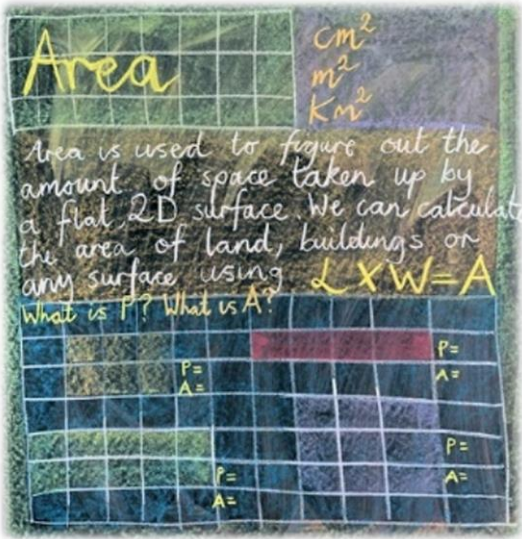 Area
cm²
m²
Km²
Area is used to figure out the
amount of space taken up by
a flat, 2D surface. We can calculat
the area of land, buildings or
any surface using L X W = A
What is P? What is A?
P=
A=
P=
A=
P=
A=
P=
A=